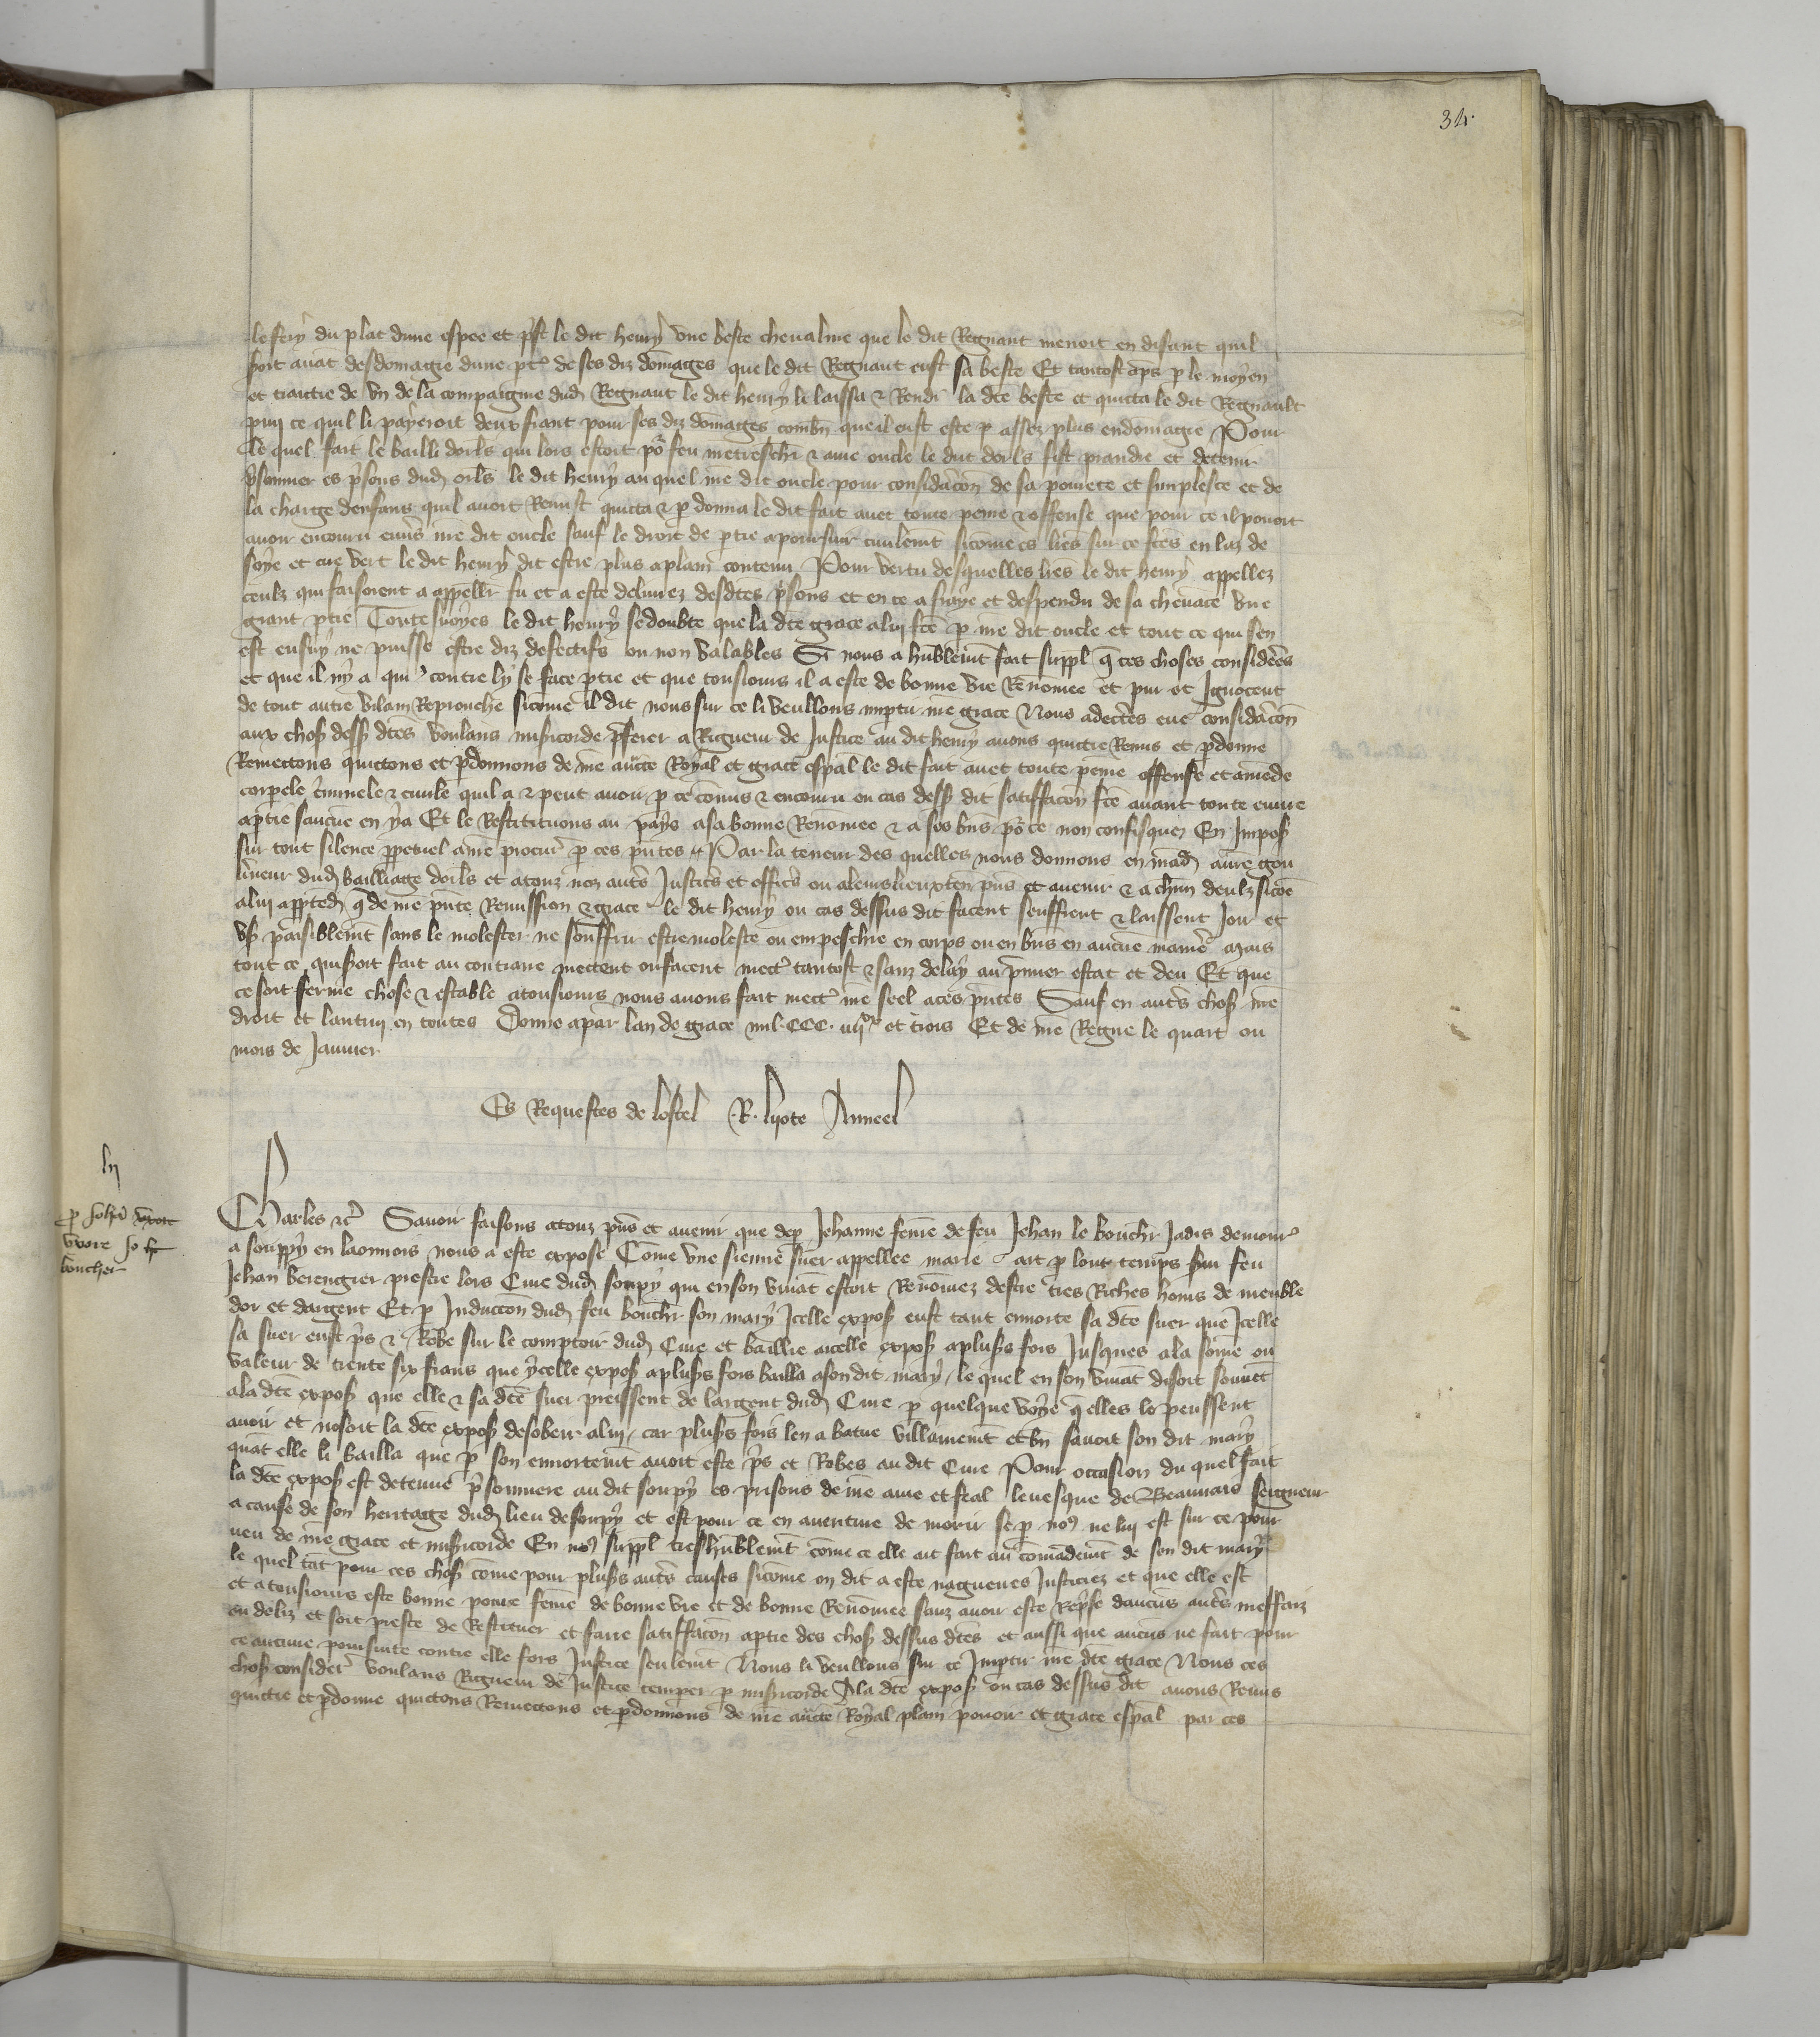 34.
le feri du plat dune espee et pst le dit henry une beste chevaline que le dit Regnaut menoit en disant quil
soit avat desdomagie dune ptie de ses diz domages que le dit Regnaut eust sa beste Et tantost aps p le moyen
et traictie de un de la compaignie dud Regnaut le dit henry li laissa & Rendi la dte beste et quicta le dit Regnault
pmi ce quil li payeroit deux frans pour ses diz domages combn que il eust este p assez plus endomagie Pour
le quel fait le bailli dorls qui lors estoit po feu nre treschr & ame oncle le duc dorls fist prandre et detenir
psonnier es psons dud orls le dit henry au quel nre dit oncle pour consideracon de sa povrete et simplesce et de
la charge denfans quil avoit Remist quicta & pdonna le dit fait avec toute peine & offense que pour ce il povoit
avoir encouru envs nre dit oncle sauf le droit de ptie a poursuir civilemt sicome es lres sur ce fces en laz de
soye et cire vert le dit henry dit estre plus aplain contenu Pour vertu desquelles lres le dit henry appellez
ceulz qui faisoient a appeller fu et a este delivrez desdtes psons et en ce a fraye et despendu de sa chevace une
grant ptie Toutesvoyes le dit henry se doubte que la dte grace a lui fce p nre dit oncle et tout ce qui sen
est ensuy ne puisse estre diz defectifs ou non valables Si nous a humblemt fait suppl q ces choses considerees
et que il ny a qui contre ly se face ptie et que tousiours il a este de bonne vie Renomee et pur et Ignocent
de tout autre vilain Reprouche sicome il dit nous sur ce li veullons impartir nre grace Nous adectes eue consideracon
aux chos dess dtes voulans misericorde pferer a Rigueur de Justice au dit henry avons quictie Remis et pdonne
Remectons quictons et pdonnons de nre aucte Royal et grace espal le dit fait avec toute peine offense et amende
corpele criminele & civile quil a & peut avoir p ce comis & encouru ou cas dess dit satisfacon fce avant toute euvre
a ptie saucune en y a Et le Restituons au pays a sa bonne Renomee & a ses bns po ce non confisquez En Impos
sur tout silence ppetuel a nre procur p ces pntes Par la teneur des quelles nous donnons en mad au gou
verneur dud bailliage dorls et a touz noz auts Justiciers et officrs ou a leurs lieuxten pns et avenir & a chun deulz sicome
a lui apptend q de nre pnte Remission & grace le dit henry ou cas dessus dit facent seuffrent & laissent Joir et
us paisiblemt sans le molester ne souffrir estre moleste ou empeschie en corps ou en bns en aucune maniere Mais
tout ce qui soit fait au contraire mectent ou facent mectre tantost & sanz delay au pmier estat et deu Et que
ce soit ferme chose & estable a tousiours nous avons fait mectre nre seel a ces pntes Sauf en auts chos nre
droit et lautrui en toutes Donne a par lan de grace mil CCC iiijxx et trois Et de nre Regne le quart ou
mois de Janvier
Es Requestes de lostel R. lyote Anneel
lij
p Joha uxore
uxore Jo le
boucher
Charles &c Savoir faisons a touz pns et avenir que dep Jehanne feme de feu Jehan le bouchr Jadis demour
a souppy en laonnois nous a este expose Come une sienne suer appellee marie ait p lonc temps servi feu
Jehan berengier prestre lors Cure dud soupy qui en son vivat estoit Renomez destre tres Riches homs de meuble
dor et dargent Et p Induccon dud feu bouchr son mary Icelle expos eust tant enorte sa dte suer que Icelle
sa suer eust ps & Robe sur le comptoir dud Cure et baillie a icelle expos a pluss fois Jusques a la some ou
valeur de trente six frans que ycelle expos a pluss fois bailla a son dit mary le quel en son vivat disoit souvet
a la dte expos que elle & sa dte suer preissent de largent dud Cure p quelque voye q elles le peussent
avoir et nosoit la dte expos desobeir a lui car pluss fois len a batue villainemt et bn savoit son dit mary
quat elle li bailla que p son ennortemt avoit este ps et Robes au dit Cure Pour occasion du quel fait
la dte expos est detenue psonniere au dit soupy es prisons de nre ame et feal levesque de Beauvais seigneur
a cause de son heritage dud lieu de soupy et est pour ce en aventure de morir se p nos ne lui est sur ce pour
veu de nre grace et misericorde En nos suppl treshublemt come ce elle ait fait au comademt de son dit mary
le quel tat pour ces chos come pour pluss auts causes sicome on dit a este nagueres Justiciez et que elle est
et a tousiours este bonne povre feme de bonne vie et de bonne Renomee sanz avoir este Repse daucuns auts meffaiz
ou deliz et soit preste de Restituer et faire satisfacon a ptie des chos dessus dtes et aussi que aucuns ne fait pour
ce aucune poursuite contre elle fors Justice seulemt Nous li veullons sur ce Impartir nre dte grace Nous ces
chos consider voulans Rigueur de Justice temper p misericorde A la dte expos ou cas dessus dit avons Remis
quictie et pdonne quictons Remectons et pdonnons de nre aucte Royal plain povoir et grace espal par ces